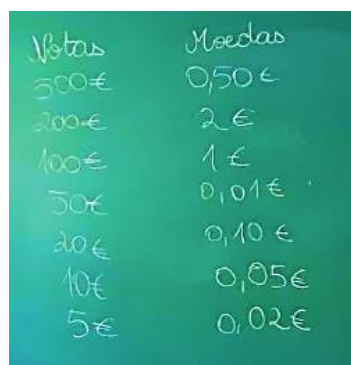 Notas Moedas
500€ 0,50€
200€ 2€
100€ 1€
50€ 0,01€
20€ 0,10€
10€ 0,05€
5€ 0,02€